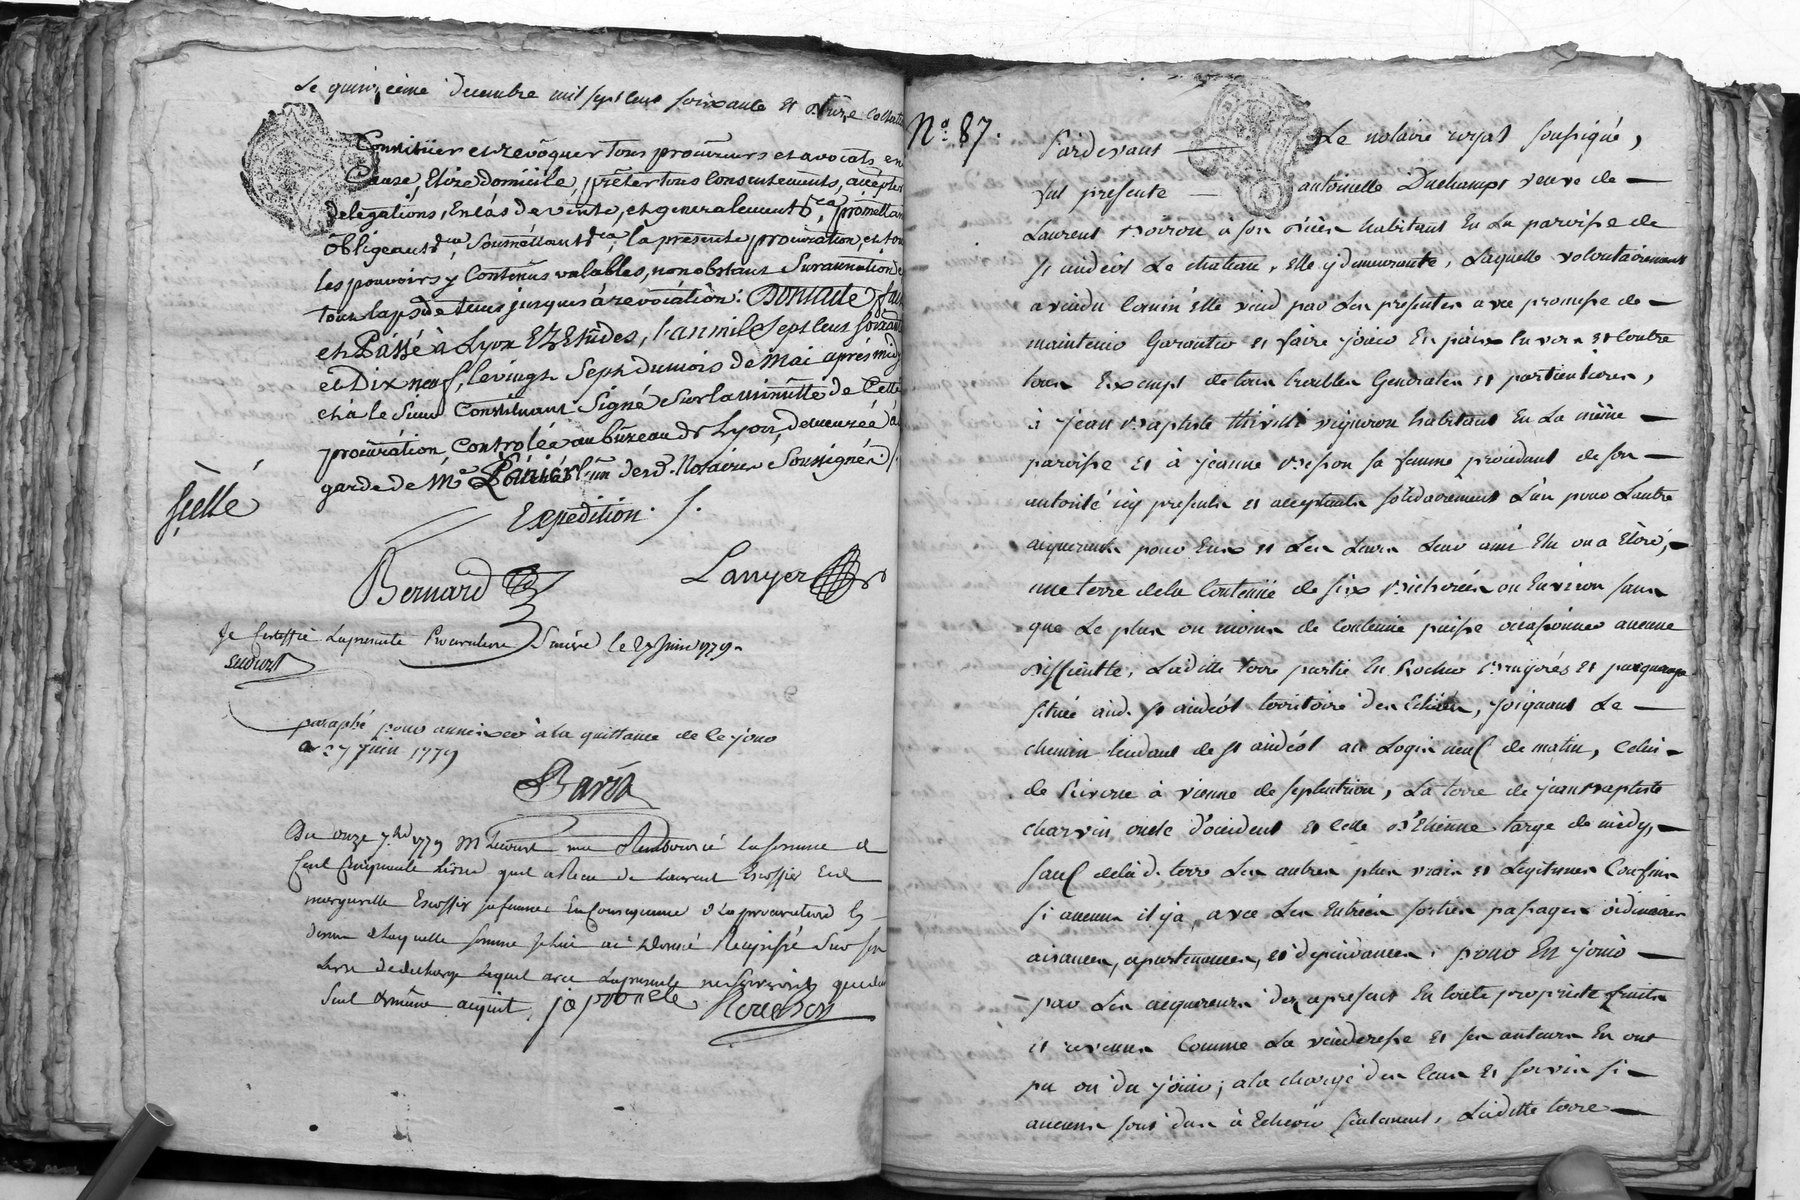 Le quinzieme decembre mil sept cent soixante et
Constitüer et revoquer tous procureurs et avocats en
Cause, Elire domicile, préter tous Consentements, accepter
delegations, En cas de vente, et generalement &ca, promettant
obligeant &ca soumettant &ca, la presente procuration, et tous
les pouvoirs y Contenus valables, nonobstant Surannation et
tout laps de tems jusques à révocation: Dont acte fait
et Passé à Lyon Ez Etudes, l'an mil Sept Cent soixante
et Dix neuf, le vingt Sept du mois de Mai après midy
et a le Sieur Constituant Signé Sur la minutte de Cette
procuration Controlée au bureau de Lyon, demeurée à la
garde de Me l'un desd. Notaires Soussignés./.
Expedition./.
sçellé
Bernard
Lanyer
Je Certiffie la presente Procuration Sincère le 27 Juin 1779
paraphé pour annexer à la quittance de ce jour
27 juin 1779
Du onze 7bre 1779 Mr ma Remboursé la somme de
Cent Cinquante Livres de Laurent Escoffier
marguerite Escoffier sa femme En Consequence de la procuration
laquelle somme
decharge lequel avec la presente
Seul & même acquit
No. 87.
Pardevant Le notaire royal soussigné,
fut presente antoinette Duchamps veuve de
Laurent a son vivant habitant En La paroisse de
st andéol Le chateau, Elle y demeurante, Laquelle volontairement
a vendu Comm'elle vend par Les presentes avec promesse de
maintenir Garantir et faire jouir En paix Envers et Contre
tous Exempt de tous troubles Generales et particulieres,
à jean Baptiste vigneron habitant En La même
paroisse et à jeanne Besson sa femme procedant de son
autorité icy presents et acceptants solidairement L'un pour L'autre
acquereurs pour Eux et Les Leurs Leur ami Elu ou a Elire,
une terre de la Contenüe de six Bicherées ou Environ sans
que Le plus ou moins de Contenüe puisse occasionner aucune
difficulté, Laditte terre partie En Rocher et pasquerage
située aud. st andéol territoire des, joignant Le
chemin tendant de st andéol au Logis neuf de matin, Celui
de Riverie à vienne de septentrion, La terre de jean Baptiste
charvin oncle d'occident et Celle d'Etienne large de midy,
sauf de la d. terre Les autres plus vrais et Legitimes Confins
si aucuns il y a, avec Les Entrées sorties passages ordinaires
aisances, apartenances, et dependances: pour En jouir
par Les acquereurs des apresent En toute propriété fruits
et revenus Comme La venderesse et ses auteurs En ont
pu ou du jouir; a la charge des Cens et servis si
aucuns sont dus à Echeoir seulement, Laditte terre